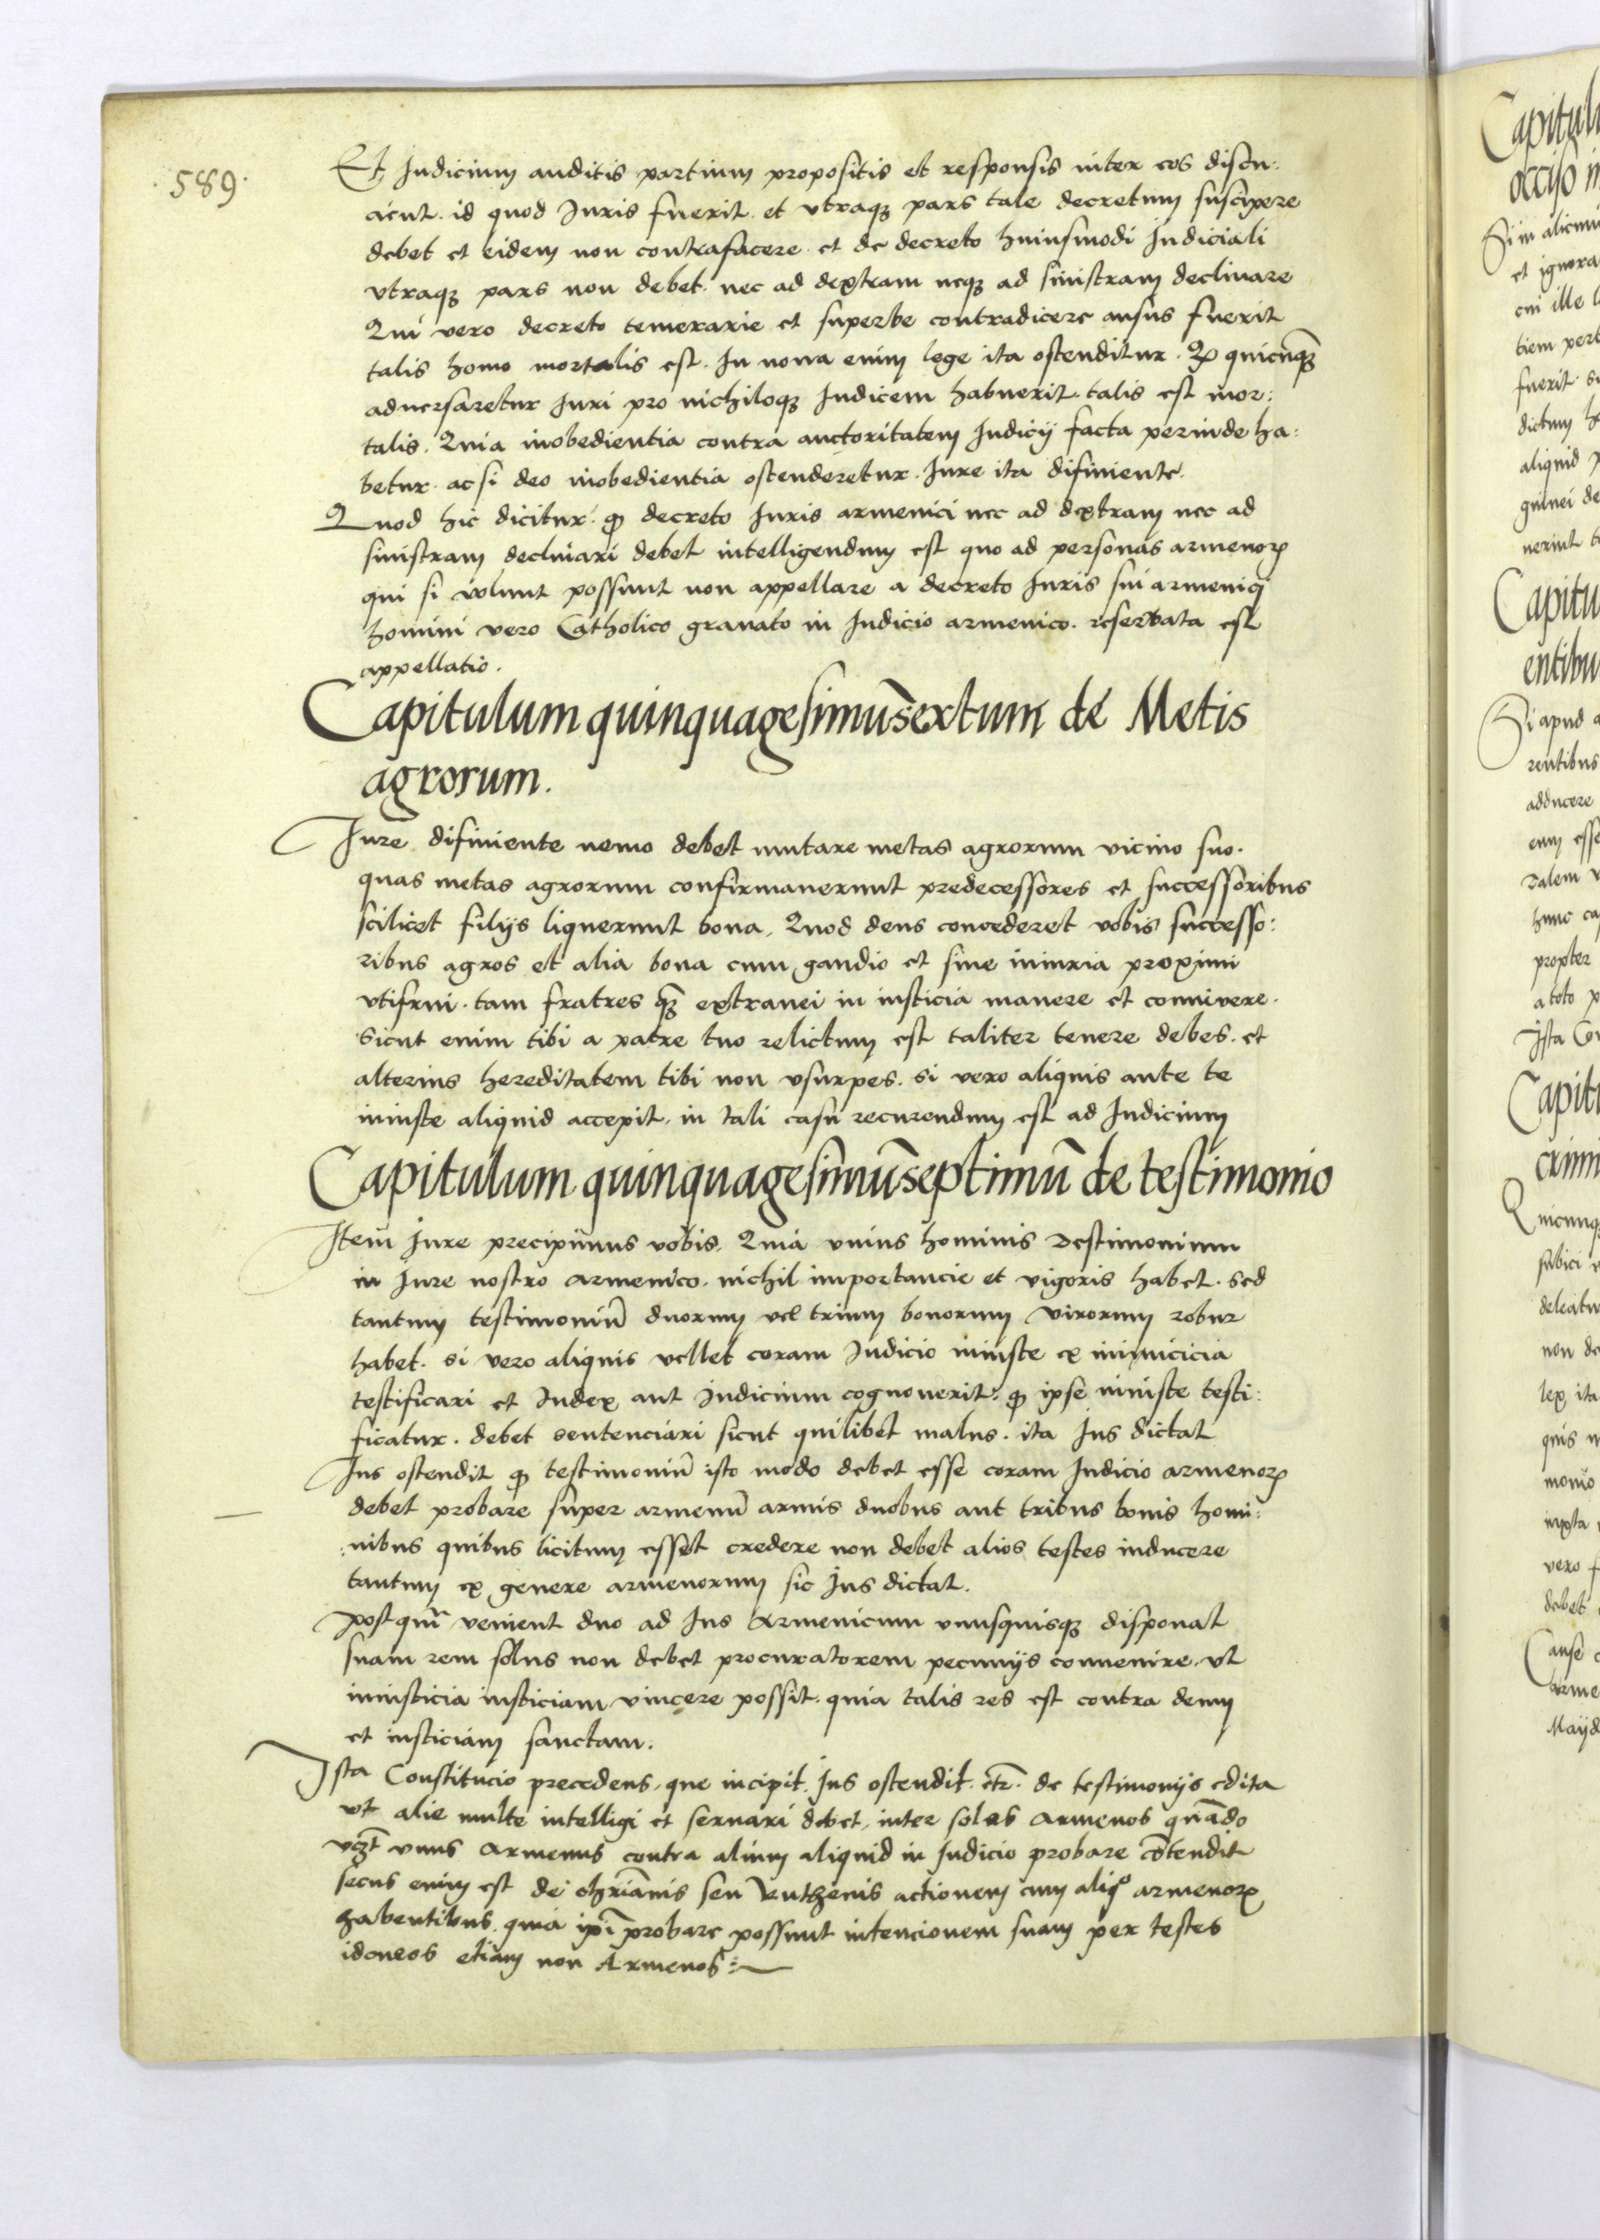 ·589·
Et Judicium auditis partium propositis et responsis inter eos discu:
cient id quod Juris fuerit et vtraqꝫ pars tale decretum suscipere
debet et eidem non contrafacere et de decreto huiusmodi Judiciali
vtraqꝫ pars non debet nec ad dexteam neqꝫ ad sinistram declinare
Qui vero decreto temerarie et superbe contradicere ausus fuerit
talis homo mortalis est. In noua enim lege ita ostenditur. Qꝫ quicūqꝫ
aduersaretur Juri pro nichiloqꝫ Judicem habuerit talis est mor:
talis. Quia inobedientia contra auctoritatem Judicij facta perinde ha:
betur ac si deo inobedientia ostenderetur. Jure ita difiniente.
Quod hic dicitur ꝙ decreto Juris armenici nec ad dextram nec ad
sinistram declinari debet intelligendum est quo ad personas armenoꝝ
qui si volunt possunt non appellare a decreto Juris sui armenici
homini vero Catholico grauato in Judicio armenico reseruata est
appellatio.
Capitulum quinquagesimūsextum de Metis
agrorum.
Jure difiniente nemo debet mutare metas agrorum vicino suo.
quas metas agrorum confirmauerunt predecessores et successoribus
scilicet filijs liquerunt bona. Quod deus concederet vobis successo:
ribus agros et alia bona cum gaudio et sine iniuria proximi
vtifrui. tam fratres qꝫ extranei in iusticia manere et conuivere.
Sicut enim tibi a patre tuo relictum est taliter tenere debes. et
alterius hereditatem tibi non vsurpes. si vero aliquis ante te
iniuste aliquid accepit. in tali casu recurendum est ad Judicium
Capitulum quinquagesimūseptimū de testimonio
Item Jure precipimus vobis. Quia vnius hominis Testimonium
in Jure nostro armenico. nichil importancie et vigoris habet. sed
tantum testimoniū duorum vel trium bonorum virorum robur
habet. si vero aliquis vellet coram Judicio iniuste ex inimicicia
testificari et Judex aut Judicium cognouerit. ꝙ ipse iniuste testi:
ficatur. debet sentenciari sicut quilibet malus. ita Jus dictat
Jus ostendit ꝙ testimoniū isto modo debet esse coram Judicio armenoꝝ
debet probare super armenū armis duobus aut tribus bonis homi:
:nibus quibus licitum esset credere non debet alios testes inducere
tantum ex genere armenorum sic Jus dictat.
Postqūm venient duo ad Jus Armenicum vnusquisqꝫ disponat
suam rem solus non debet procuratorem pecunijs conuenire. vt
iniusticia iusticiam vincere possit. quia talis res est contra deum
et iusticiam sanctam.
Ista Constitucio precedens. que incipit. Jus ostendit. etꝛ. de testimonijs edita
vt alie multe intelligi et seruari debet. inter solos Armenos quādo
vꝫt vnus Armenus contra alium aliquid in Judicio probare cōtendit
secus enim est de chriānis seu Ruthenis actionem cum aliqº armenoꝝ
habentibus. quia ipī probare possunt intencionem suam per testes
idoneos etiam non Armenos :~